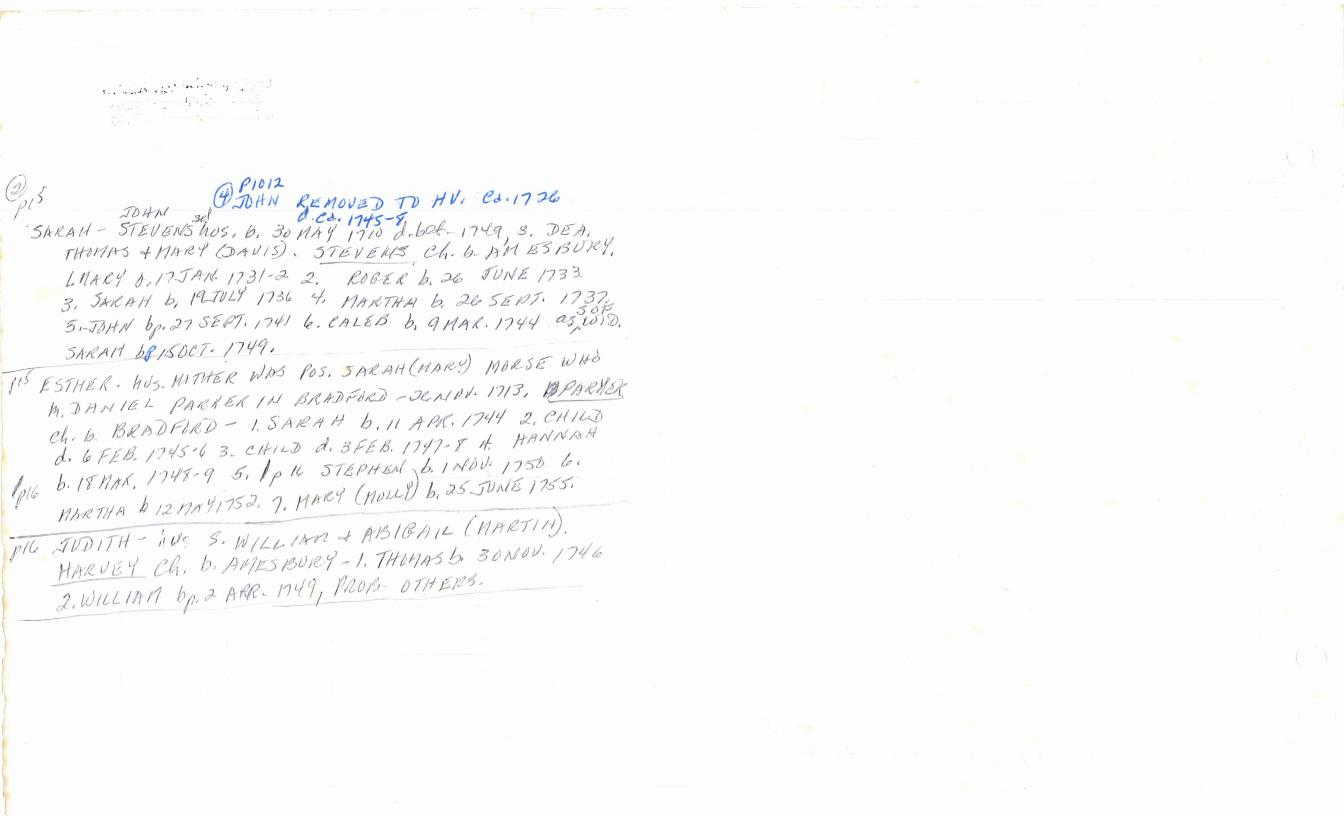 ② p15
P1012
④ JOHN REMOVED TO HV. Ca. 1726
d. Ca. 1745-8
JOHN
SARAH - STEVENS 3rd hus. b. 30 MAY 1710 d. bef. 1749, s. DEA.
THOMAS + MARY (DAVIS). STEVENS Ch. b. AMESBURY.
1. MARY b. 17 JAN 1731-2 2. ROGER b. 26 JUNE 1733
3. SARAH b. 19 JULY 1736 4. MARTHA b. 26 SEPT. 1737,
5. JOHN bp. 27 SEPT. 1741 6. CALEB b. 9 MAR. 1744 as s of wid.
SARAH bp 15 OCT. 1749.
p15 ESTHER - hus. MITHER WAS POS. SARAH (MARY) MORSE WHO
m. DANIEL PARKER IN BRADFORD - 26 NOV. 1713. PARKER
Ch. b. BRADFORD - 1. SARAH b. 11 APR. 1744 2. CHILD
d. 6 FEB. 1745-6 3. CHILD d. 3 FEB. 1747-8 4. HANNAH
b. 18 MAR. 1748-9 5. p16 STEPHEN b. 1 NOV. 1750 6.
p16 MARTHA b 12 MAY 1752. 7. MARY (MOLLY) b. 25 JUNE 1755.
p16 JUDITH - hus S. WILLIAM + ABIGAIL (MARTIN).
HARVEY Ch. b. AMESBURY - 1. THOMAS b. 30 NOV. 1746
2. WILLIAM bp. 2 APR. 1749, PROB. OTHERS.